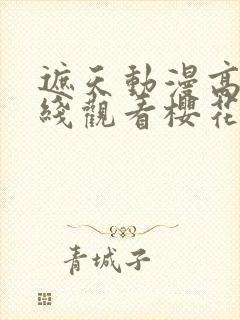 遮天動漫高
綫觀看櫻花
青城子